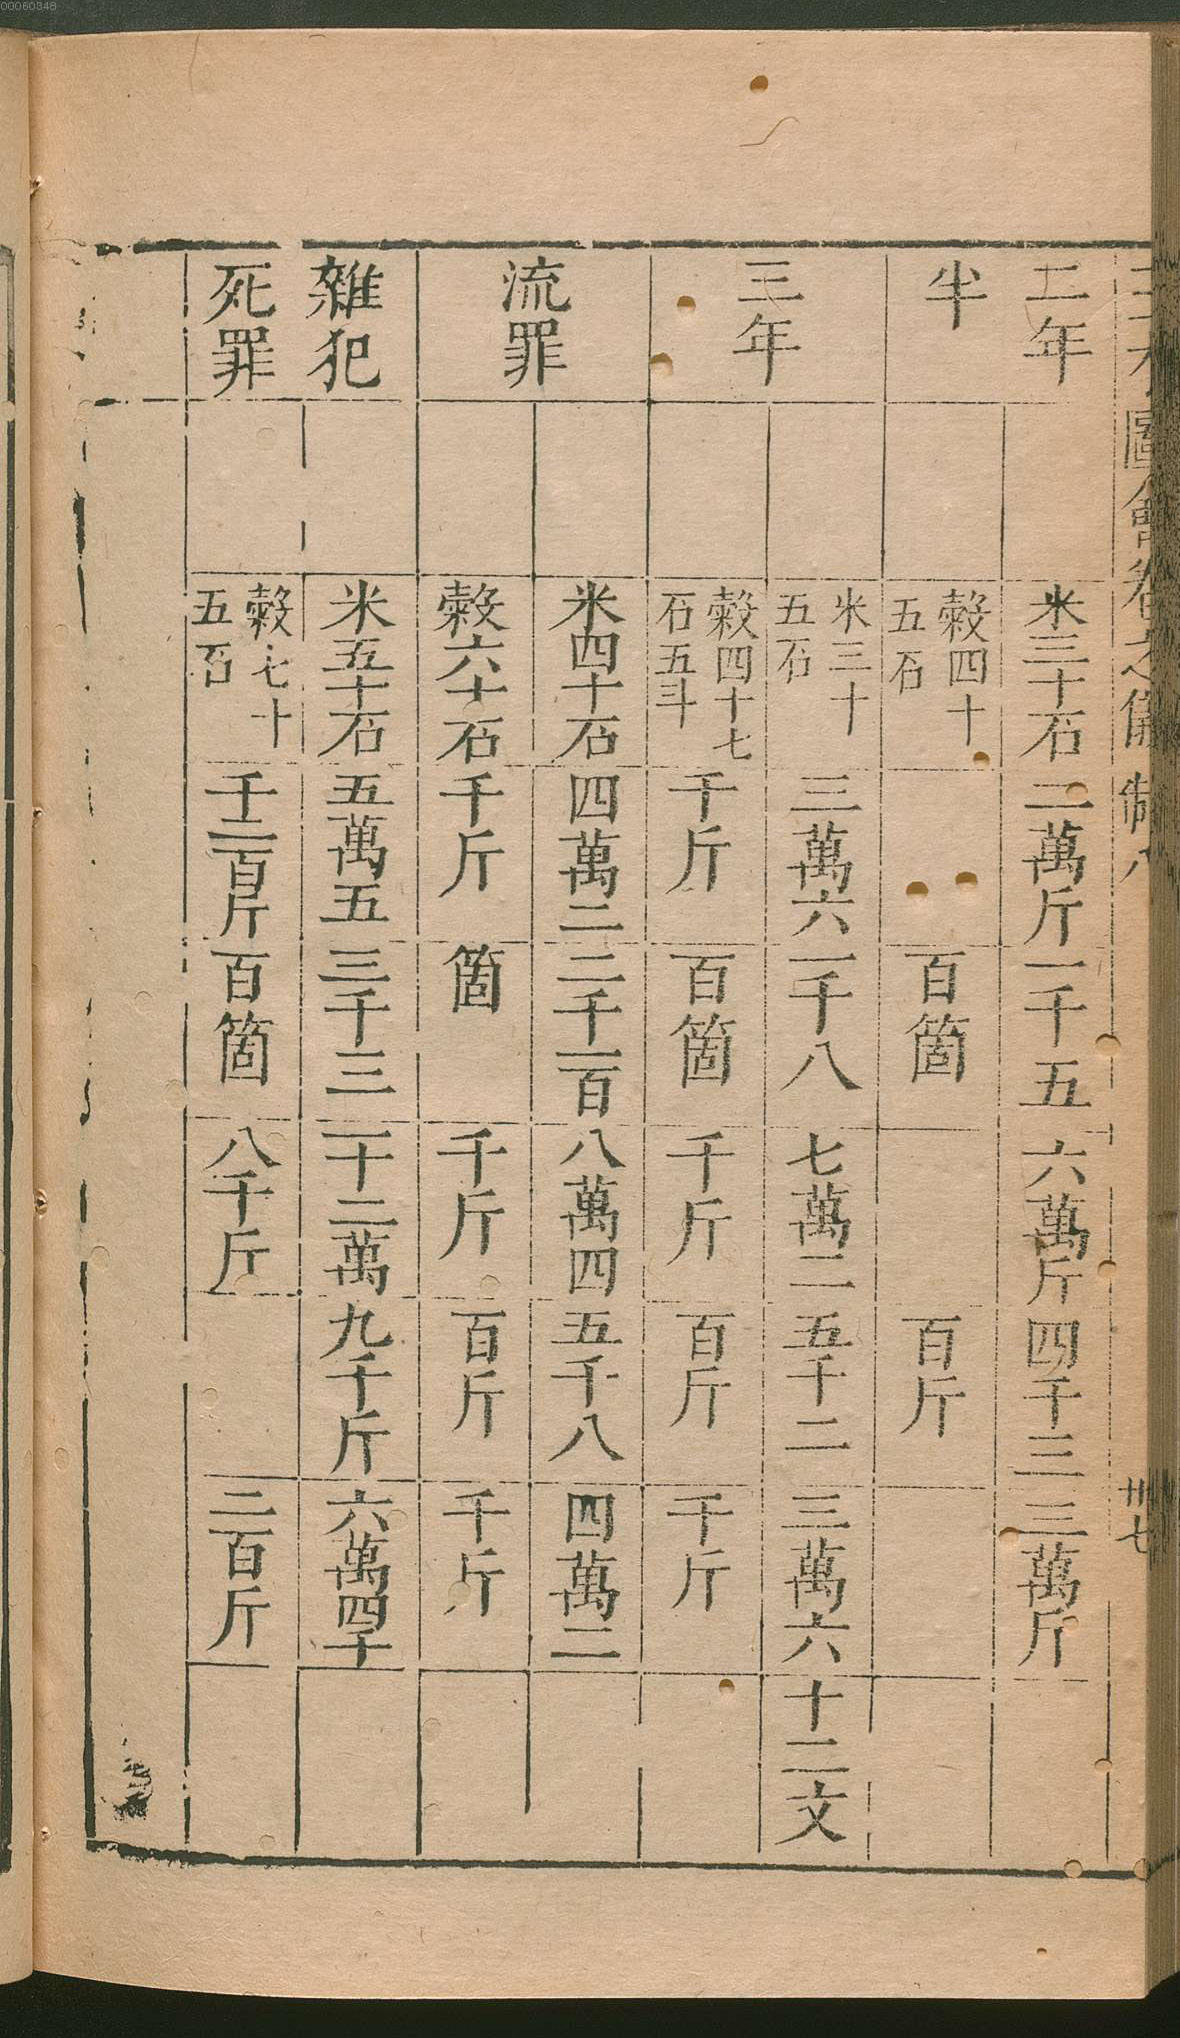 00060348
圖會卷之儀制八
卅七
二年
米三十石
二萬斤
一千五
六萬斤
四千三
三萬斤
半
穀四十
五石
百箇
百斤
三年
米三十
五石
三萬六
一千八
七萬二
五千二
三萬六
十二文
穀四十七
石五斗
千斤
百箇
千斤
百斤
千斤
流罪
米四十石
四萬二
二千一百
八萬四
五千八
四萬二
穀六十石
千斤
箇
千斤
百斤
千斤
雜犯
米五十石
五萬五
三千三
一十二萬
九千斤
六萬四千
死罪
穀七十
五石
千二百斤
百箇
八千斤
二百斤